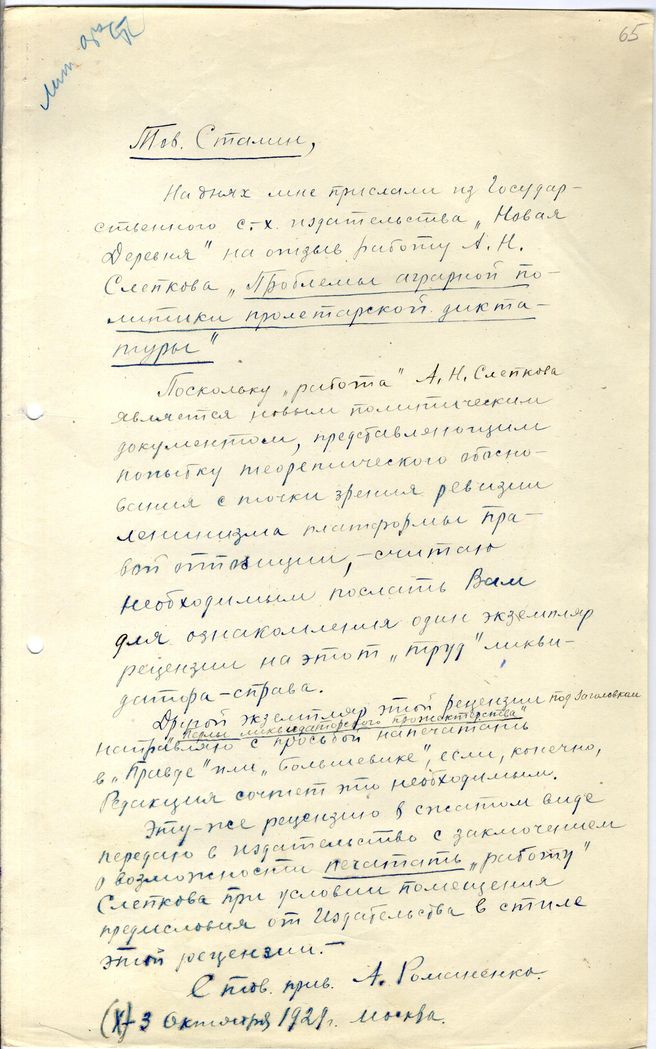 65
Тов. Сталин,
На днях мне прислали из Государ-
ственного с.-х. издательства „Новая
Деревня" на отзыв работу А. Н.
Слепкова „Проблемы аграрной по-
литики пролетарской дикта-
туры"
Поскольку „работа" А.Н. Слепкова
является новым политическим
документом, представляющим
попытку теоретического обосно-
вания с точки зрения ревизии
ленинизма платформы пра-
вой оппозиции, – считаю
необходимым послать Вам
для ознакомления один экземпляр
рецензии на этот „труд" ликви-
датора-справа.
Другой экземпляр этой рецензии под заголовком
„Перлы ликвидаторского прожектерства"
направляю с просьбой напечатать
в „Правде" или „Большевике", если, конечно,
Редакция сочтет это необходимым.
Эту-же рецензию в сжатом виде
передаю в издательство с заключением
о возможности печатать „работу"
Слепкова при условии помещения
предисловия от Издательства в стиле
этой рецензии. –
С тов. прив. А. Романенко.
3 Октября 1929 г. Москва.